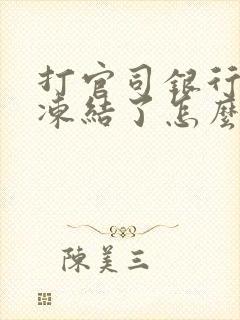 打官司銀行
凍結了怎麼
陳美三